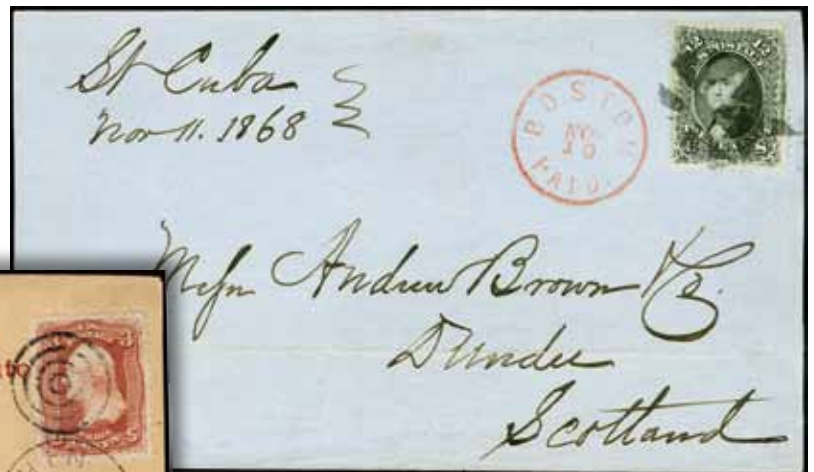 St Cuba
Nov 11. 1868
BOSTON
NO
10
PAID.
12 12
POSTAGE
Messrs Andrew Brown & Co.
Dundee
Scotland
3